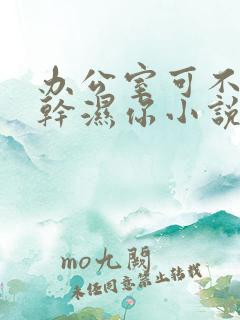 办公室可不
幹濕你小說
mo九閱
未经同意禁止转载